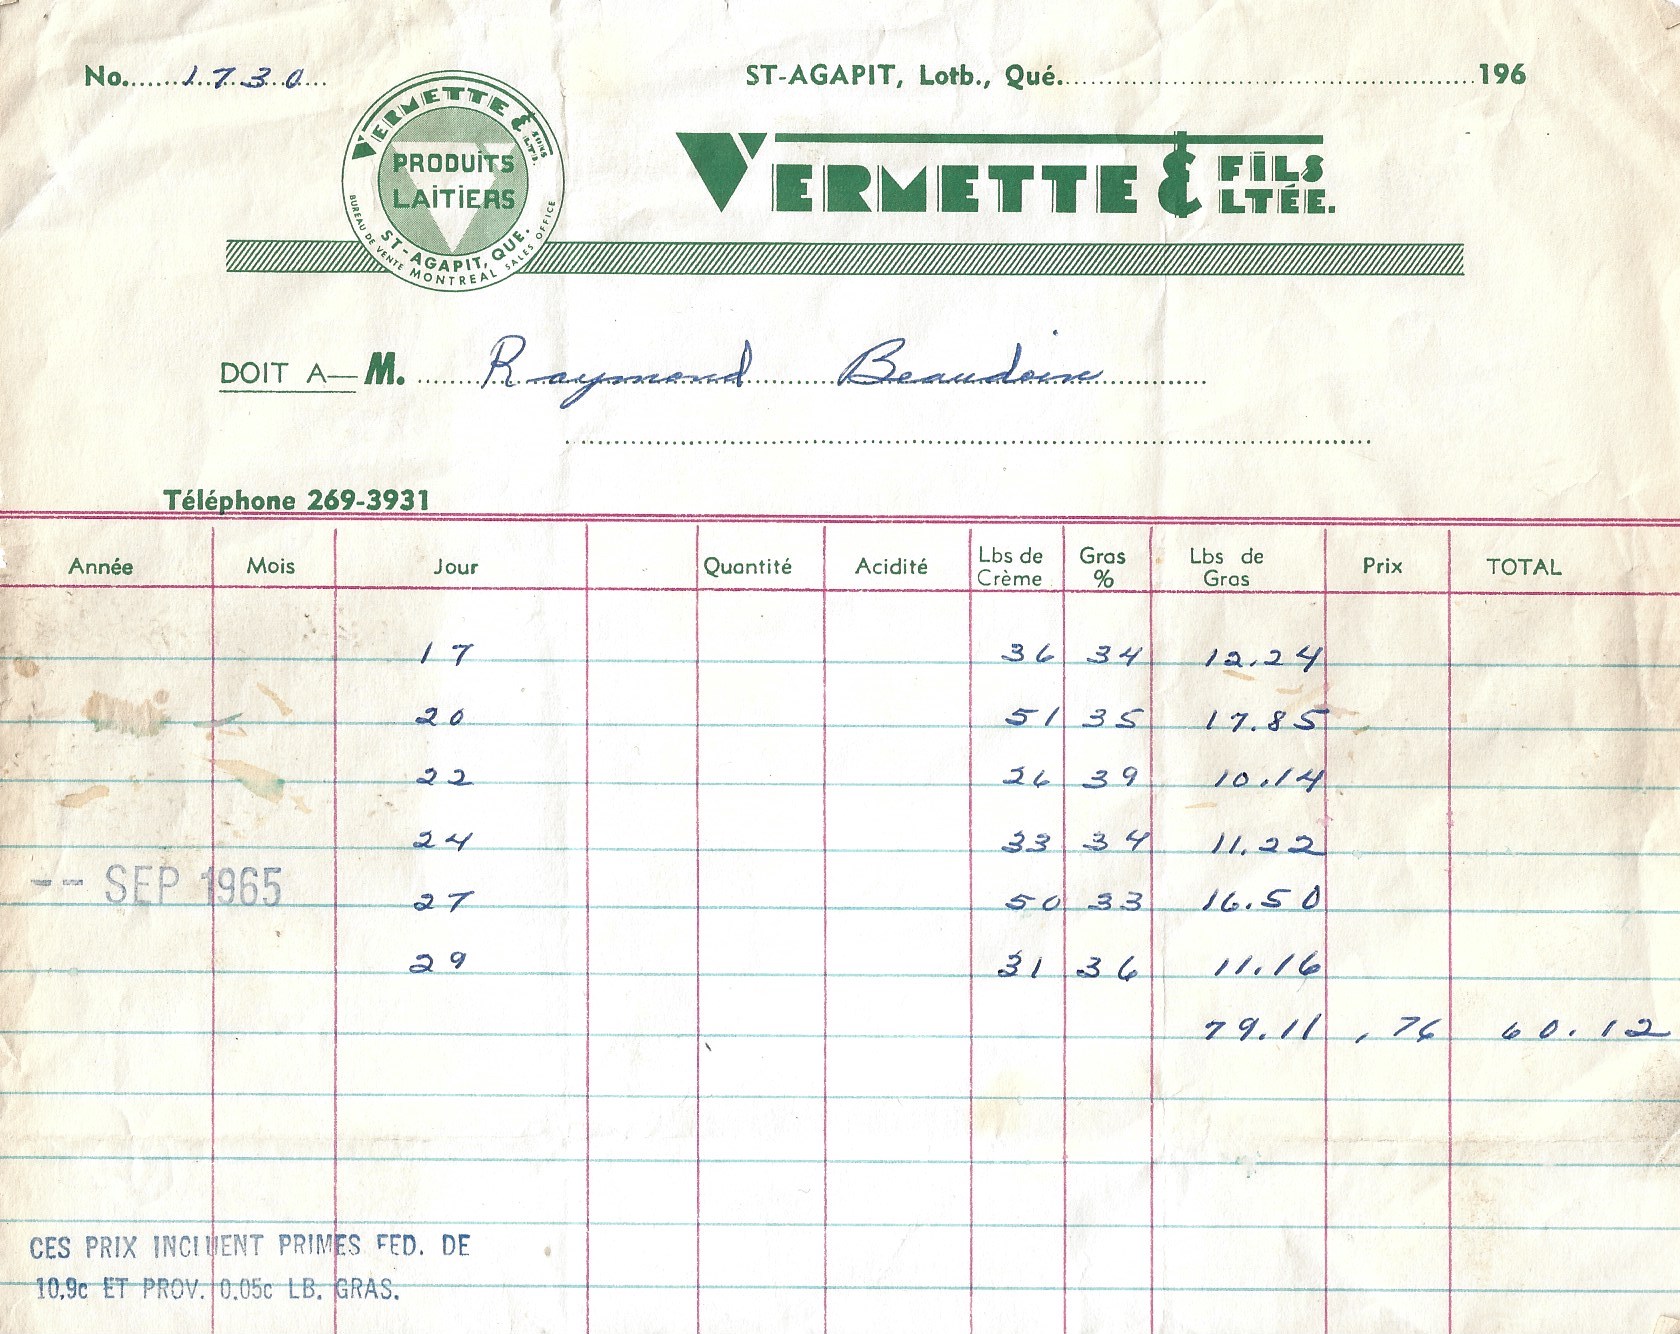 No. 1730
ST-AGAPIT, Lotb., Qué. 196
VERMETTE & SONS LTD.
PRODUITS
LAITIERS
ST-AGAPIT, QUE.
BUREAU DE VENTE MONTREAL SALES OFFICE
VERMETTE & FILS LTÉE.
DOIT A— M. Raymond Beaudoin
Téléphone 269-3931
Année Mois Jour Quantité Acidité Lbs de Crème Gras % Lbs de Gras Prix TOTAL
17 36 34 12.24
20 51 35 17.85
22 26 39 10.14
24 33 34 11.22
-- SEP 1965
27 50 33 16.50
29 31 36 11.16
79.11 .76 60.12
CES PRIX INCLUENT PRIMES FED. DE
10.9c ET PROV. 0.05c LB. GRAS.